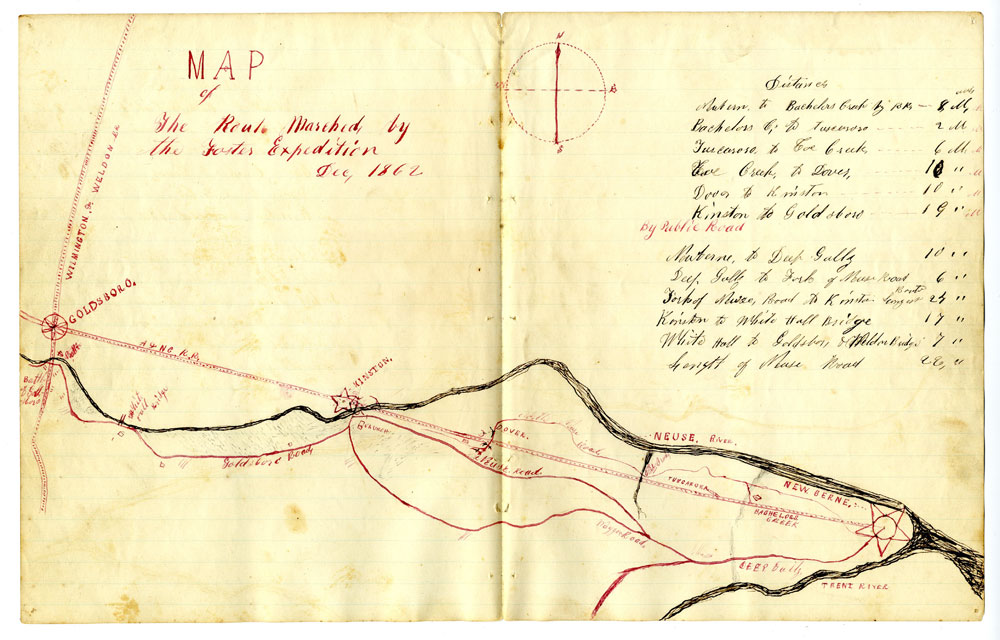 MAP
of
The Rout Marched, by
the Foster Expedition
Dec, 1862
N
S
Distances
Nubern, to Bachelors Creek by RR — 8 M,
Bachelors C; to Tuscarora 2 M
Tuscarora, to Cove Creek 6 M
Cove Creek, to Dover, 10 "
Dover to Kinston 10 "
Kinston to Goldsboro 19 "
By Public Road
Nuberne, to Deep Gully 10 "
Deep Gully to Fork of Neuse Road 6 "
Fork of Neuse, Road to Kinston longest Route 24 "
Kinston to White Hall Bridge 17 "
White Hall to Goldsboro & Weldon Bridge 7 "
Length of Neuse Road "
WILMINGTON, & WELDON RR
GOLDSBORO,
A & N C R R,
KINSTON,
White Hall Bridge
Goldsboro Road,
CHURCH
DOVER.
Neuse Road.
Road
NEUSE, River.
TUSCARORA
NEW BERNE,
BACHELORS
CREEK
DEEP Gully
TRENT RIVER